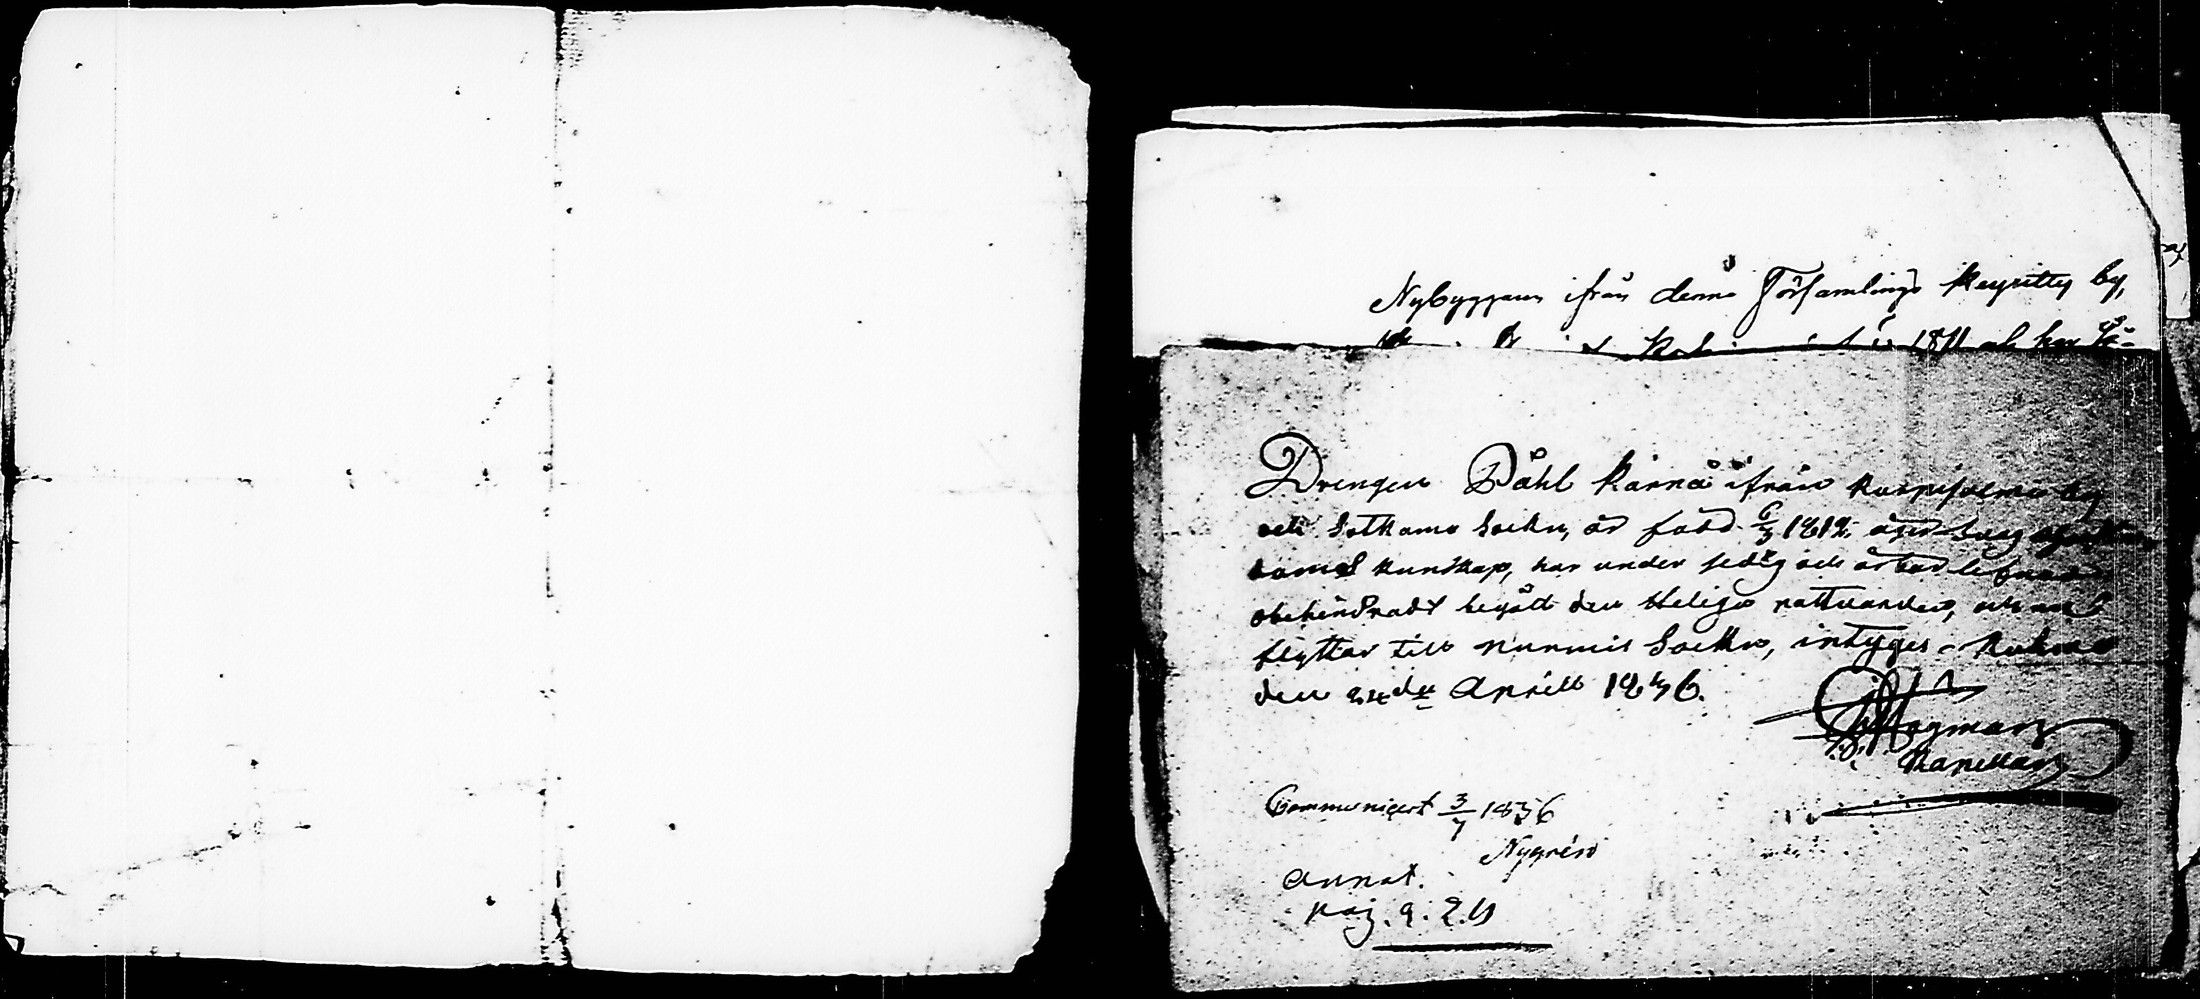 Nybyggaren ifrån denna Församlings Keyritty by,
1811 och har
Drengen Påhl Kärnä ifrån Kuhmoniemi by
och Sotkamo Sockn, är född 6/3 1812, äger svag
kunskap, har under sedlig och ärbar lefnad
obehindradt begått den Heliga nattvarden, och nu
flyttar till Nurmis Sockn, intyges. Kuhmo
den 24de Aprill 1836.
Hogman
Kapellan
Communicert 3/7 1836
Nygrén
Annot.
pag. 9.